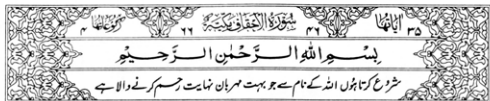 اٰیَاتُهَا ٣٥ ٤٦ سُوْرَةُ الْاَحْقَافِ مَكِّيَّةٌ ٦٦ رُكُوْعَاتُهَا ٤
بِسْمِ اللهِ الرَّحْمٰنِ الرَّحِيْمِ
شروع کرتا ہوں اللہ کے نام سے جو بہت مہربان نہایت رحم کرنے والا ہے